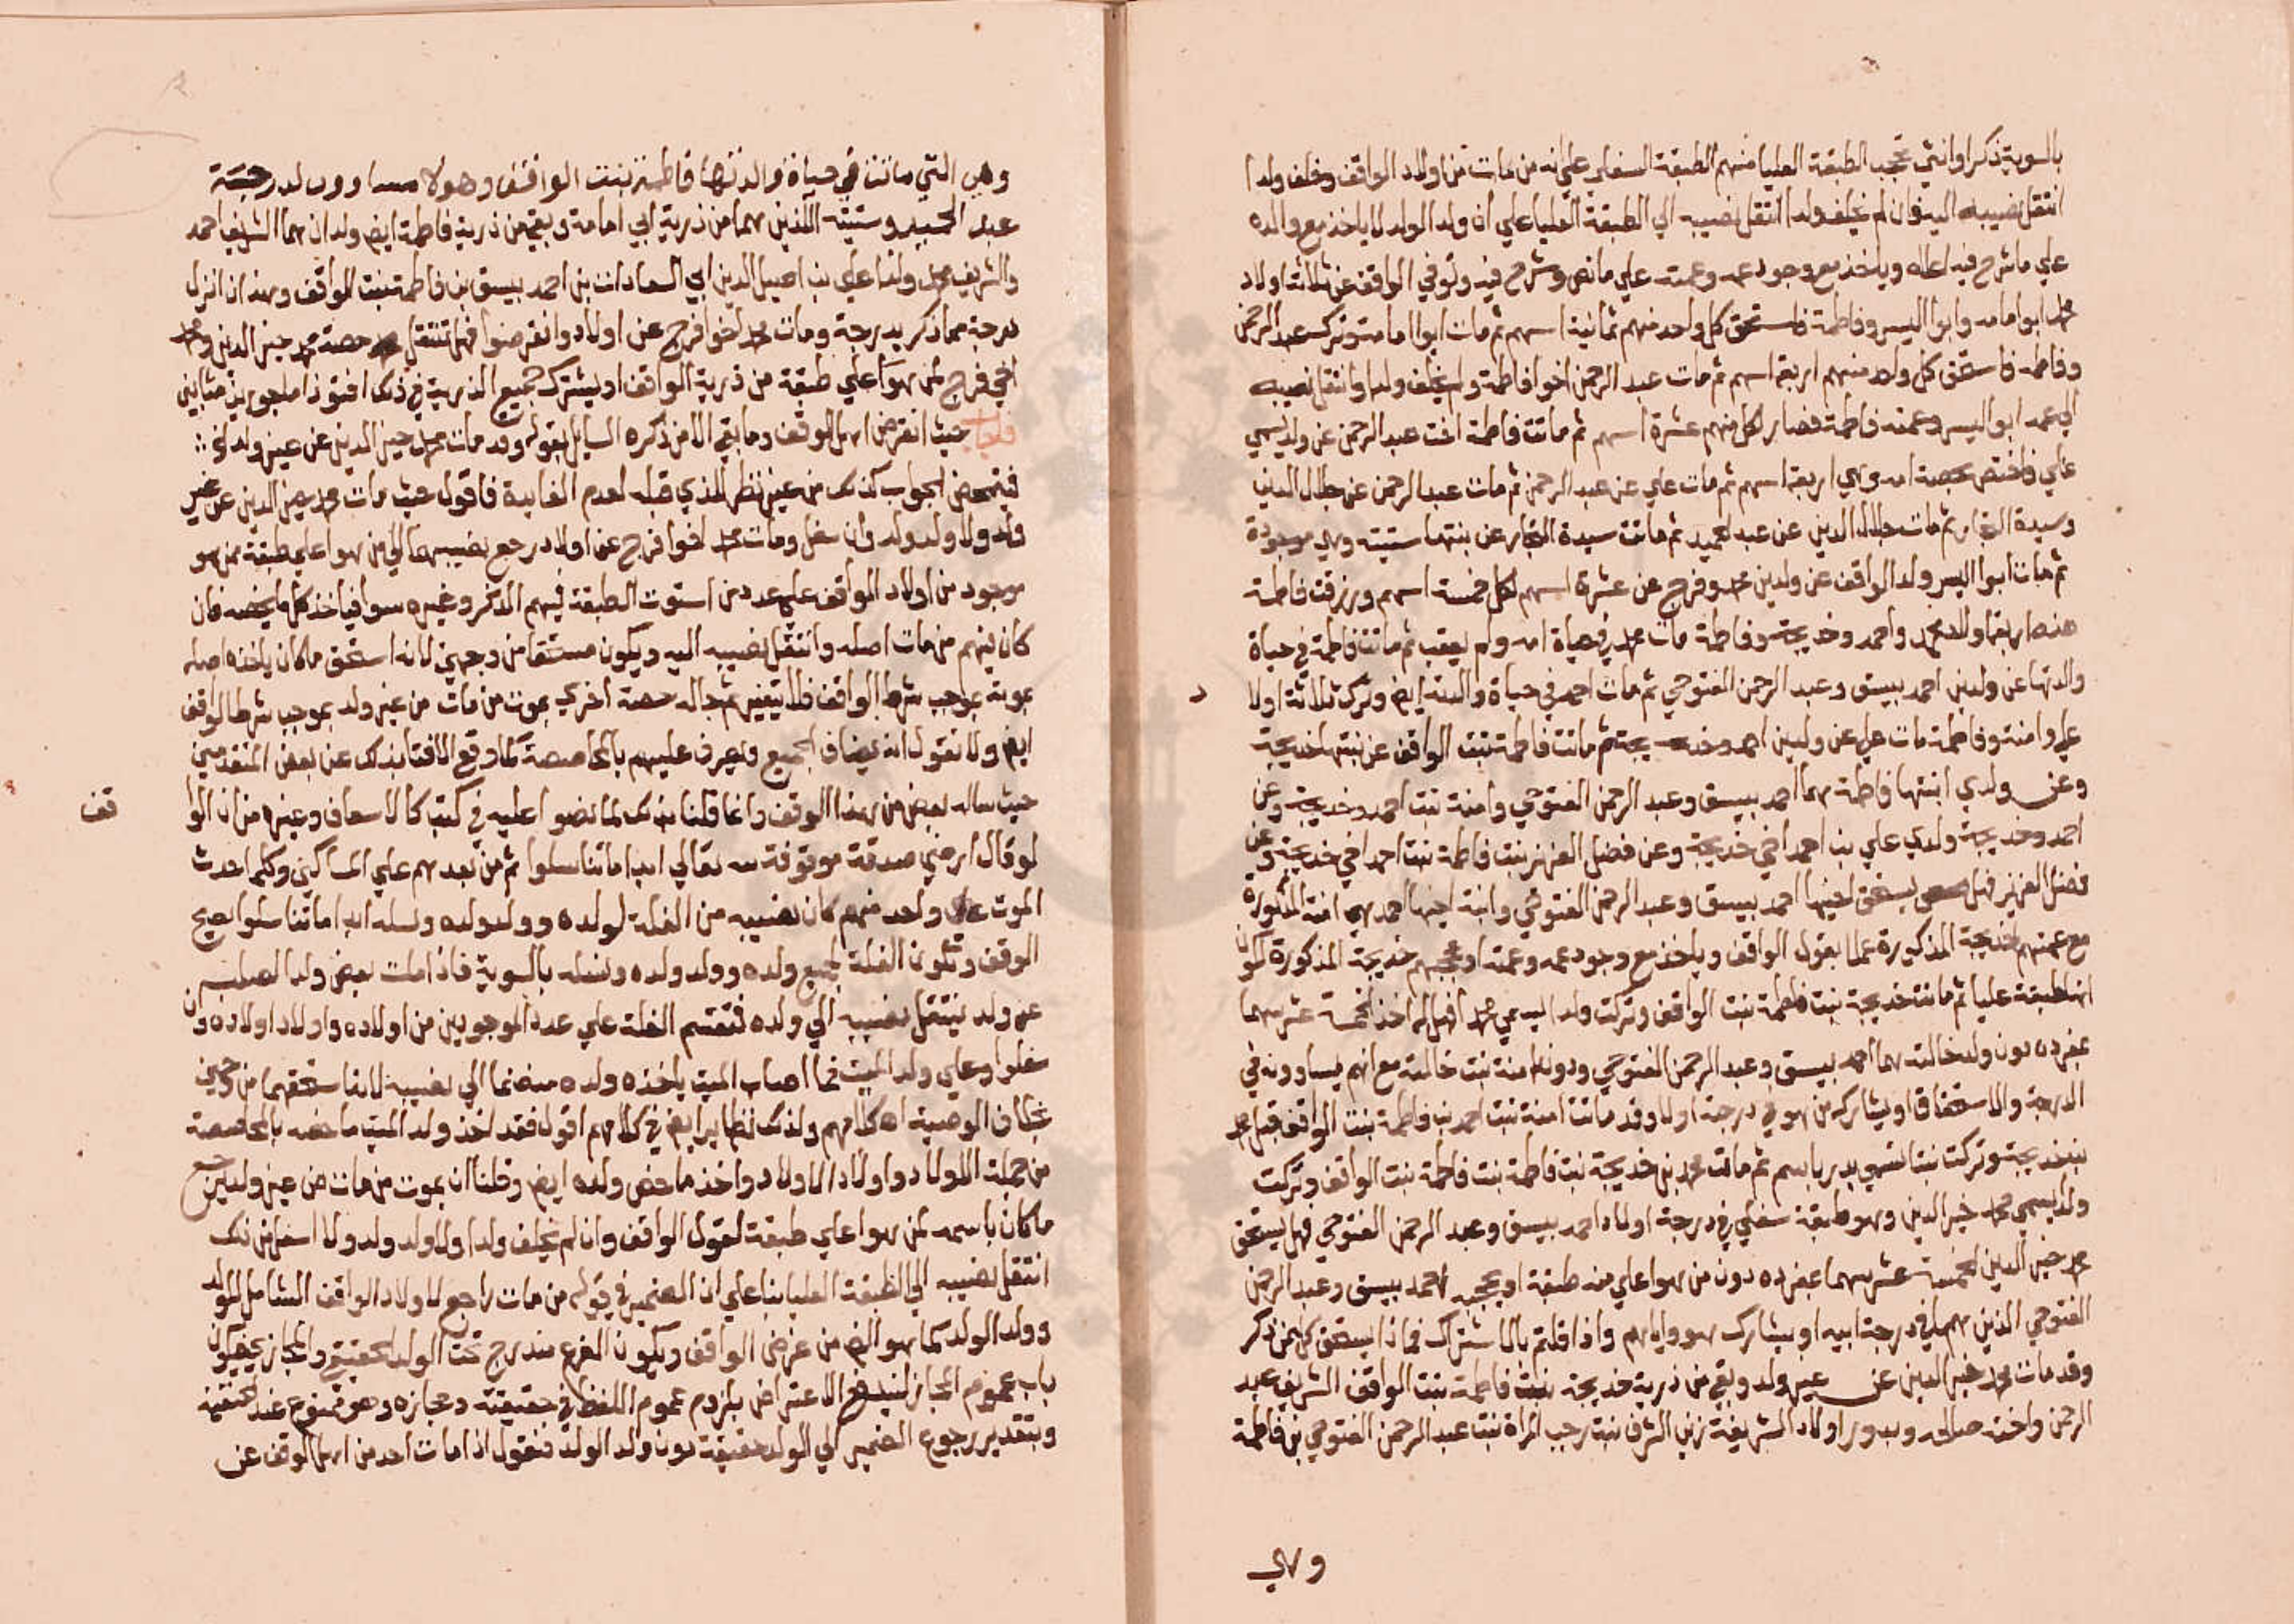 بالسوية ذكرا وانثي تحجب الطبقة العليا منهم الطبقة السفلي علي انه من مات من اولاد الواقف وخلف ولدا
انتقل نصيبه اليه فان لم يخلف ولدا انتقل نصيبه الي الطبقة العليا علي ان ولد الولد لا ياخذ مع والده
علي ما شرح فيه اعلاه وياخذ مع وجود عمه وعمته علي ما نص وشرح فيه وتوفي الواقف عن ثلاثة اولاد
هم ابو امامه وابو اليسر وفاطمة فاستحق كل واحد منهم ثمانية اسهم ثم مات ابو امامة وترك عبد الرحمن
وفاطمه فاستحق كل واحد منهم اربعة اسهم ثم مات عبد الرحمن اخو فاطمة ولم يخلف ولدا وانتقل نصيبه
الي عمه ابو اليسر وعمته فاطمة فصار لكل منهم عشرة اسهم ثم ماتت فاطمة اخت عبد الرحمن عن ولد يسمي
علي فاختص بحصة امه وهي اربعة اسهم ثم مات علي عن عبد الرحمن ثم مات عبد الرحمن عن جلال الدين
وسيدة التجار ثم مات جلال الدين عن عبد الحميد ثم ماتت سيدة التجار عن بنتها ستيته وهي موجودة
ثم مات ابو اليسر ولد الواقف عن ولدين محمد وفرج عن عشرة اسهم لكل خمسة اسهم ورزقت فاطمة
هذه اربعة اولاد محمد واحمد وخديجة وفاطمة مات محمد في حياة امه ولم يعقب ثم ماتت فاطمة في حياة
والدتها عن ولدين احمد بيسق وعبد الرحمن الفتوحي ثم مات احمد في حياة والدته ايض وترك ثلاثة اولاد
علي وامنة وفاطمة مات علي عن ولدين احمد وخديجة ثم ماتت فاطمة بنت الواقف عن بنتها خديجة
وعن ولدي ابنتها فاطمة هما احمد بيسق وعبد الرحمن الفتوحي وامنة بنت احمد وخديجة وعن
احمد وخديجة ولدي علي بن احمد اخي خديجة وعن فضل العزيز بنت فاطمة بنت احمد اخي خديجة وعن
فضل العزيز فهل يستحق احمد بيسق وعبد الرحمن الفتوحي وابنة اخيها احمد هي امنة المذكورة
مع عمتهم خديجة المذكورة عملا بقول الواقف وياخذ مع وجود عمه وعمته او تحجبهم خديجة المذكورة لكون
انها طبقة عليا ثم ماتت خديجة بنت فاطمة بنت الواقف وتركت ولدا يدعي محمد فهل له اخذ الخمسة عشر سهما
بمفرده دون ولد خالته هما احمد بيسق وعبد الرحمن الفتوحي ودون امنة بنت خالته مع انهم يساوونه في
الدرجة والاستحقاق او يشاركه من هو في درجة اولا وقد ماتت امنة بنت احمد بن فاطمة بنت الواقف قبل محمد
بن خديجة وتركت بنتا تسمي بدر باسم ثم مات محمد بن خديجة بنت فاطمة بنت فاطمة بنت الواقف وتركت
ولدا يسمي محمد خير الدين وهو طبقة سفلي في درجة اولاد احمد بيسق وعبد الرحمن الفتوحي فهل يستحق
محمد خير الدين الخمسة عشر سهما بمفرده دون من هو اعلي منه طبقة او يحجبه احمد بيسق وعبد الرحمن
الفتوحي الذين هما في درجة ابيه او يشارك هو واياهم واذا قلتم بالاشتراك فماذا يستحق كل ممن ذكر
وقد مات محمد خير الدين عن غير ولد وبقي من ذرية خديجة بنت فاطمة بنت الواقف الشريف عبد
الرحمن واخته صالحه وبدور اولاد الشريفة زين الشرف بنت رجب المراة بنت عبد الرحمن الفتوحي بن فاطمة
وهي
وهي التي ماتت في حياة والدتها فاطمة بنت الواقف وهولا مساوون لدرجة
عبد الحميد وستيته اللذين هما من ذرية ابي امامة وبقي من ذرية فاطمة ايض ولدان هما الشريف احمد
والشريف محمد ولدا علي بن اصيل الدين ابي السعادات بن احمد بيسق بن فاطمة بنت الواقف وهذان انزل
درجة مما ذكر بدرجة ومات محمد اخو فرج عن اولاد وانقرضوا فهل تنتقل حصة محمد خير الدين ومحمد
اخي فرج لمن هو اعلي طبقة من ذرية الواقف او يشترك جميع الذرية في ذلك افتونا ماجورين مثابين
فاجاب حيث انقرض اهل الوقف وما بقي الا من ذكره السايل بقوله وقد مات محمد خير الدين عن غير ولد الخ
فيتمحض الجواب كذلك من غير نظر للذي قبله لعدم الفايدة فاقول حيث مات محمد خير الدين عن غير
ولد ولا ولد ولد وان سفل ومات محمد اخو فرج عن اولاد رجع نصيبهما الي من هو اعلي طبقة ممن هو
موجود من اولاد الواقف علي عدد من استوت الطبقة فيهم الذكر وغيره سوا فياخذ كل ما يخصه فان
كان فيهم من مات اصله وانتقل نصيبه اليه ويكون مستحقا من وجهين لانه استحق ما كان ياخذه اصله
بموته بموجب شرط الواقف فلا يتغير ثم جاله حصة اخري بموت من مات من غير ولد بموجب شرط الواقف
ايض ولا نقول انه يضاف الجميع ويصرف عليهم بالمحاصصة كما وقع الافتا بذلك عن بعض المتقدمين
حيث ساله بعض من هذا الوقف وانما قلنا بذلك لما نصوا عليه في كتب كالاسعاف وغيره من ان الواقف
قف
لو قال ارضي صدقة موقوفة لله تعالي ابدا ما تناسلوا ثم من بعدهم علي المساكين وكلما حدث
الموت علي واحد منهم كان نصيبه من الغلة لولده وولد ولده ونسله ابدا ما تناسلوا يصح
الوقف وتكون الغلة لجميع ولده وولد ولده ونسله بالسوية فاذا مات بعض ولد الصلب
عن ولد ينتقل نصيبه الي ولده فتقسم الغلة علي عدة الموجودين من اولاده واولاد اولاده وان
سفلوا وعلي ولد الميت فما اصاب الميت ياخذه ولده منضما الي نصيبه لانه استحقهما من وجهين
بخلاف الوصية اه كلامهم ولذلك نظاير ايض في كلامهم اقول فقد اخذ ولد الميت ما خصه بالمحاصصة
من جملة الاولاد واولاد الاولاد واخذ ما خص والده ايض وقلنا ان بموت من مات من غير ولد يرجع
ما كان باسمه لمن هو اعلي طبقة لقول الواقف وان لم يخلف ولدا ولا ولد ولد ولا اسفل من ذلك
انتقل نصيبه الي الطبقة العليا بنا علي ان الضمير في قوله من مات راجع لاولاد الواقف الشامل للولد
وولد الولد كما هو الفهم من غرض الواقف ويكون الفرع مندرج تحت الولد الحقيقي والمجازي فيكون
باب عموم المجاز ليندفع الاعتراض بلزوم عموم اللفظ في حقيقته ومجازه وهو ممنوع عند الحنفية
وبتقدير رجوع الضمير الي الولد حقيقة دون ولد الولد فنقول اذا مات احد من اهل الوقف عن